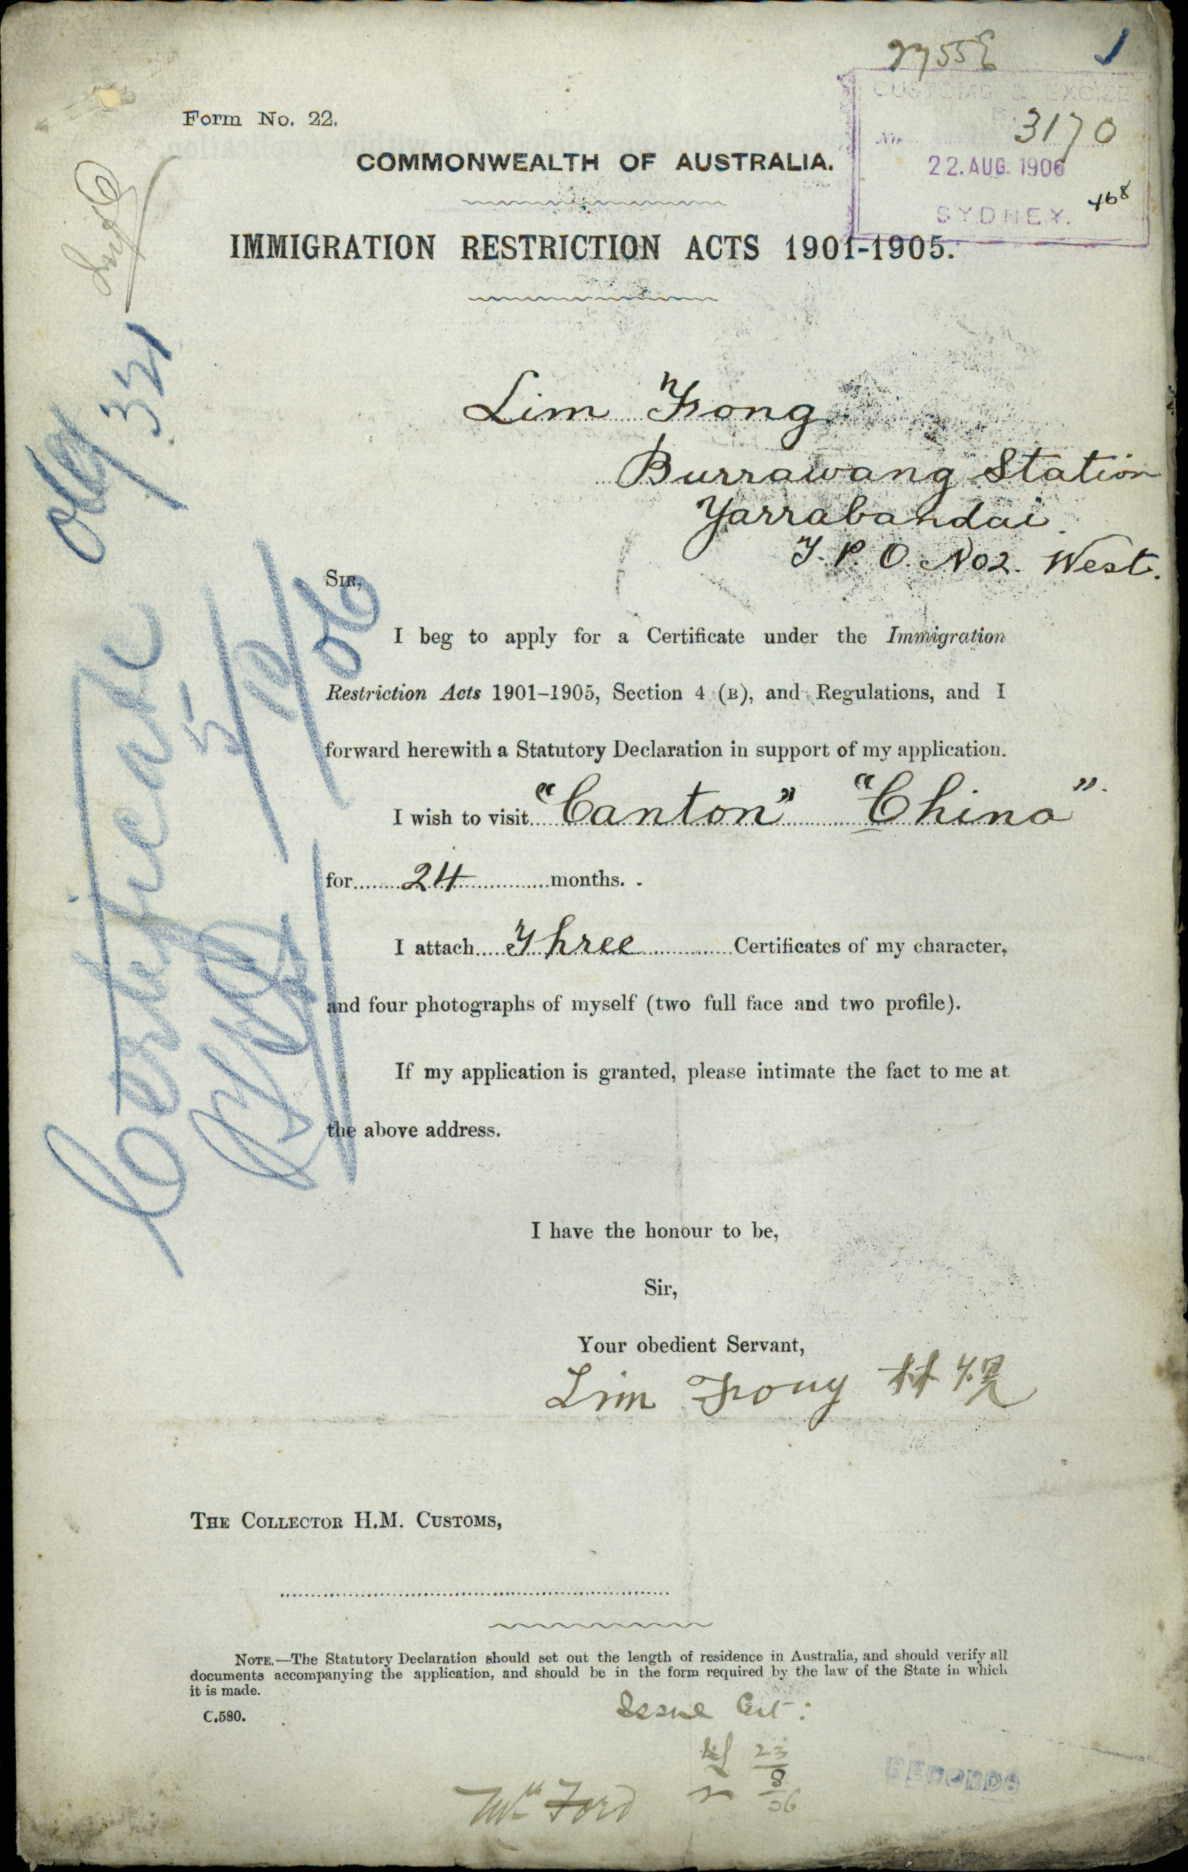 2755E
1
CUSTOMS & EXCISE
No. 3170
22. AUG. 1906
468
SYDNEY.
Form No. 22.
COMMONWEALTH OF AUSTRALIA.
IMMIGRATION RESTRICTION ACTS 1901-1905.
Lim Fong
Burrawang Station
Yarrabandai
T. P. O. No 2. West.
SIR,
I beg to apply for a Certificate under the Immigration
Restriction Acts 1901–1905, Section 4 (B), and Regulations, and I
forward herewith a Statutory Declaration in support of my application.
I wish to visit "Canton" "China".
for 24 months.
I attach Three Certificates of my character,
and four photographs of myself (two full face and two profile).
If my application is granted, please intimate the fact to me at
the above address.
I have the honour to be,
Sir,
Your obedient Servant,
Lim Fong 林
THE COLLECTOR H.M. CUSTOMS,
NOTE.—The Statutory Declaration should set out the length of residence in Australia, and should verify all
documents accompanying the application, and should be in the form required by the law of the State in which
it is made.
C.580.
Issue Cert:
23
8
06
Mr Ford
RECORDS
Certificate 06/321
5/10/06